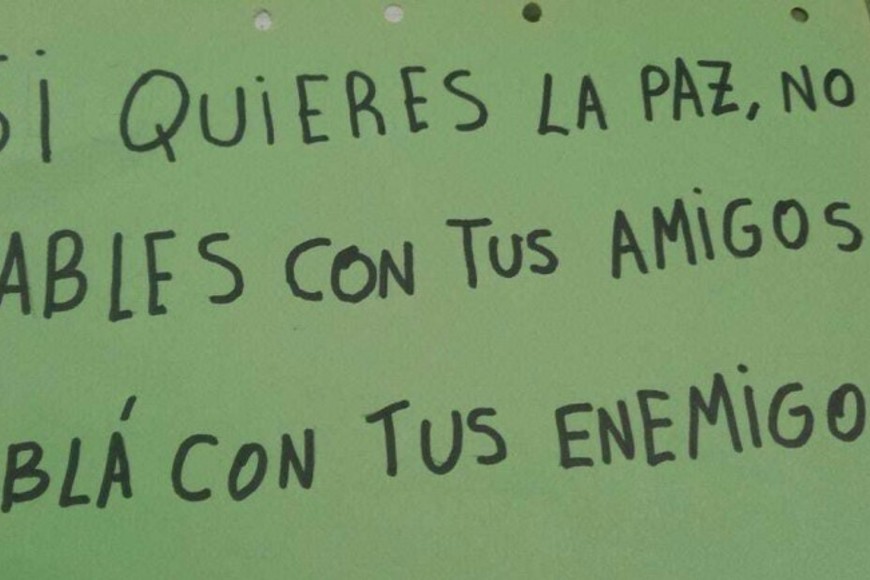 Si QUiERES LA PAZ, NO
ABLES CON TUS AMiGOS
BLÁ CON TUS ENEMiGO